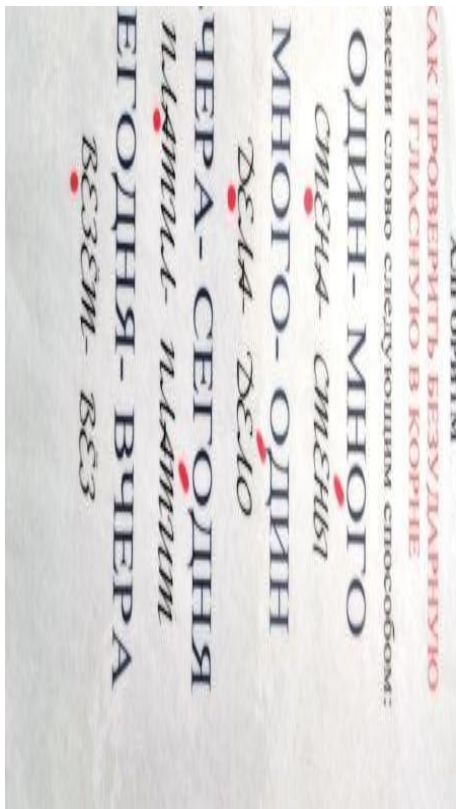 КАК ПРОВЕРИТЬ БЕЗУДАРНУЮ
ГЛАСНУЮ В КОРНЕ
слово следующим способом:
ОДИН- МНОГО
стена- стены
МНОГО- ОДИН
дела- дело
СЕГОДНЯ
платил- платит
ВЧЕРА
везёт- вез